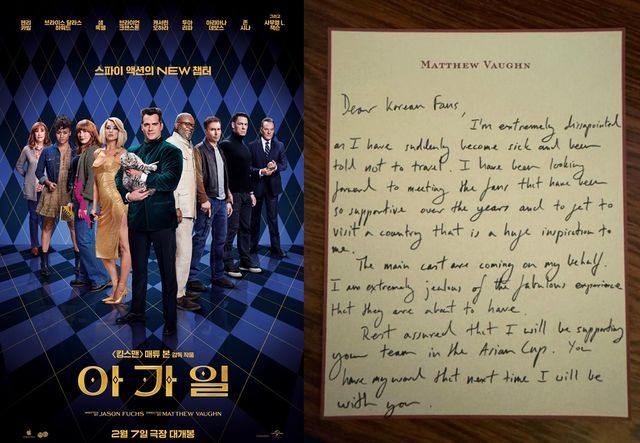 헨리 카빌
브라이스 달라스 하워드
샘 록웰
브라이언 크랜스톤
캐서린 오하라
두아 리파
아리아나 데보스
존 시나
그리고 사무엘 L. 잭슨
스파이 액션의 NEW 챕터
<킹스맨> 매튜 본 감독 작품
아가일
JASON FUCHS MATTHEW VAUGHN
2월 7일 극장 대개봉
MATTHEW VAUGHN
Dear Korean Fans,
I'm extremely dissapointed
as I have suddenly become sick and been
told not to travel. I have been looking
forward to meeting the fans that have been
so supportive over the years and to get to
visit a country that is a huge inspiration to
me.
The main cast are coming on my behalf.
I am extremely jealous of the fabulous experience
that they are about to have.
Rest assured that I will be supporting
your team in the Asian Cup. You
have my word that next time I will be
with you.